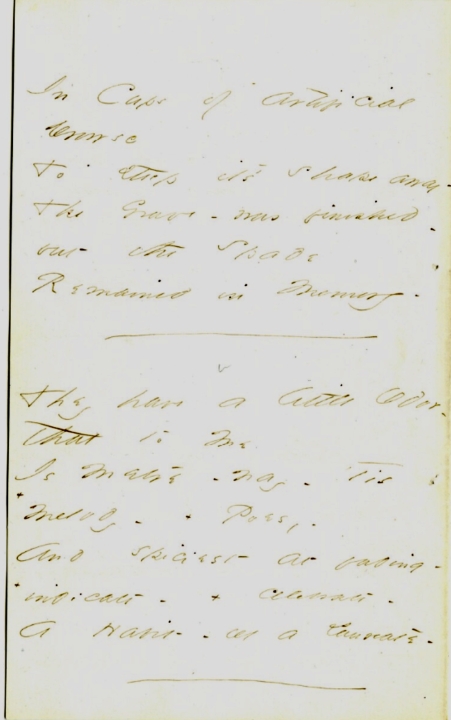 In Cups of artificial
Drowse
To steep its shape away -
The Grave - was finished -
but the Spade
Remained in Memory -
They have a little Odor -
that to me
Is metre - nay - 'tis
+ melody - + Poesy -
And spiciest at fading -
+ indicate - + celebrate -
A Habit - of a Laureate -